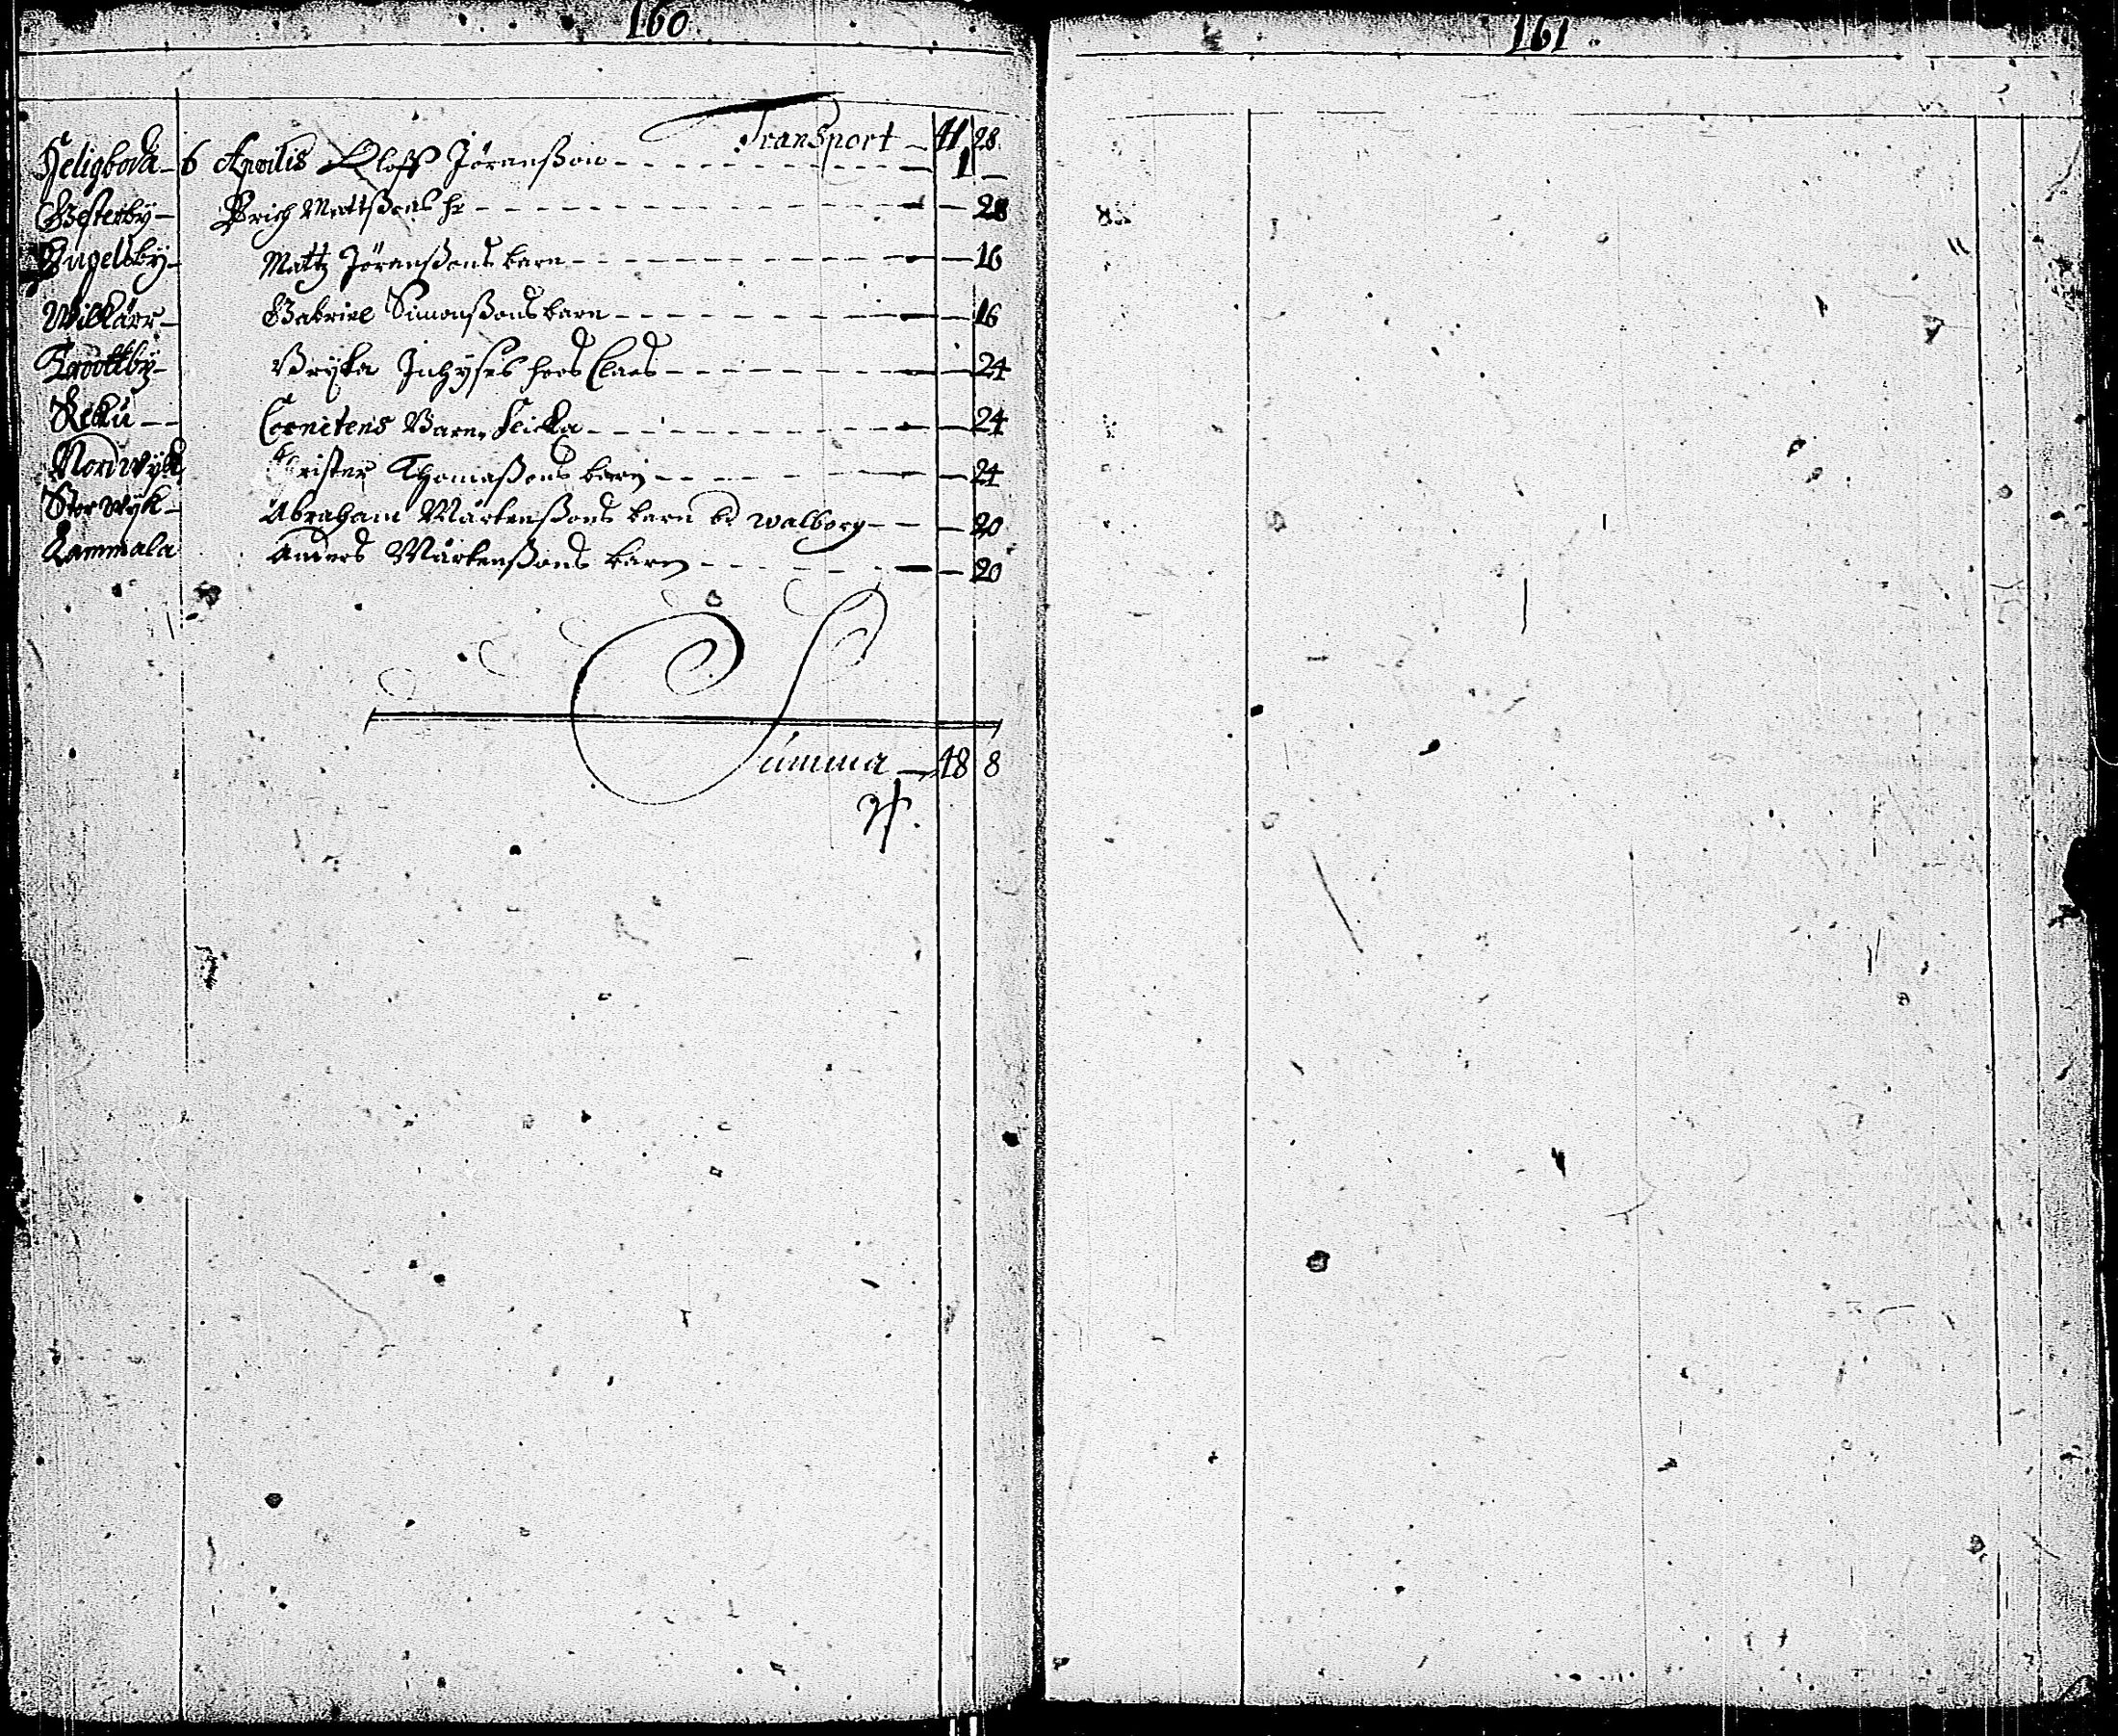 160
Transport 41 28
Heligboda 6 Aprilis Oloff Jöranßon 1 —
Westerby Erich Mattßons hr — 28
Ingelsby Mattz Jöranßons barn — 16
Wilkärr Gabriel Simonßons barn — 16
Krooktby Brijta Inhyses hoos Claes — 24
Reku Cornetens Barn, flicka — 24
Nordwijk Christer Thomaßons barn — 24
Storwijk Abraham Mårtenßons barn bd walborg — 20
Lammala Anders Mårtenßons barn — 20
Summa 48 8
161